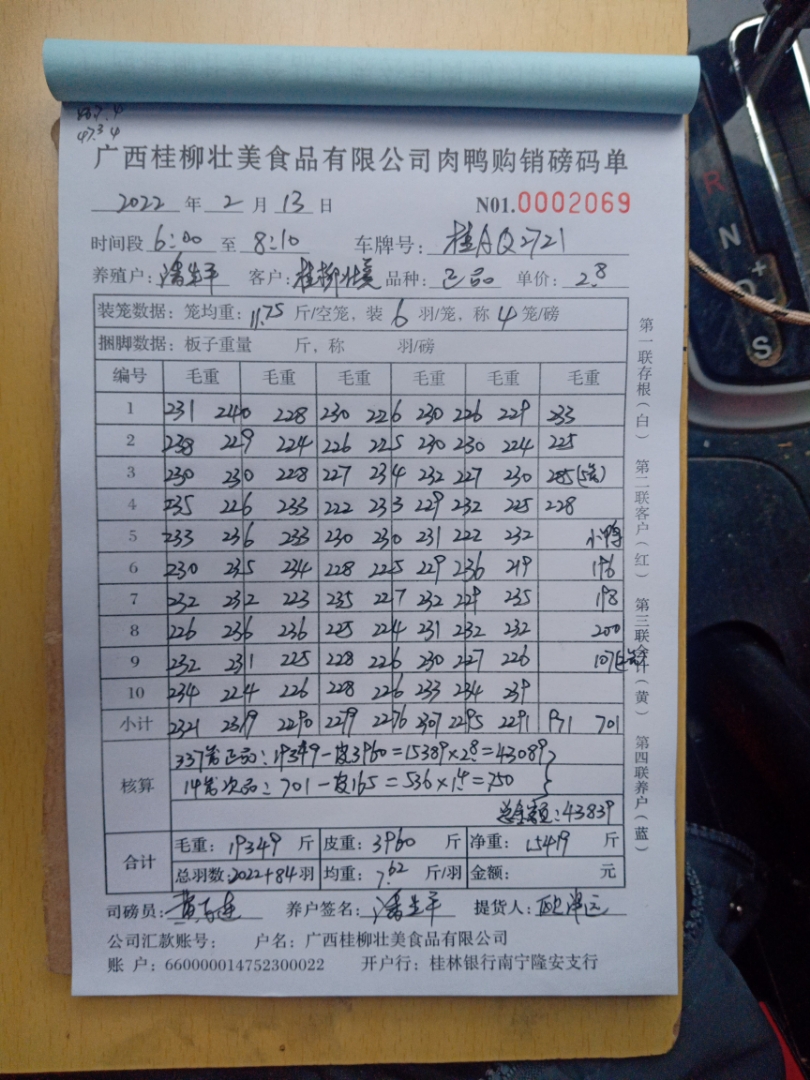 47.3 4
广西桂柳壮美食品有限公司肉鸭购销磅码单
2022年2月13日 N01.0002069
时间段6:00至8:10 车牌号:桂AQ2721
养殖户:潘生平 客户:桂柳壮美 品种:正品 单价:2.8
装笼数据:笼均重:11.75斤/空笼,装6羽/笼,称4笼/磅
捆脚数据:板子重量 斤,称 羽/磅
编号 毛重 毛重 毛重 毛重 毛重 毛重
1 231 240 228 230 226 230 226 229 233
2 238 229 224 226 225 230 230 224 225
3 230 230 228 227 234 232 227 230 285(5笼)
4 235 226 233 222 233 229 232 225 228
5 233 236 233 230 230 231 222 232 小鸭
6 230 235 234 228 225 229 236 219 196
7 232 232 223 235 227 232 229 235 198
8 226 236 236 225 224 231 232 232 200
9 232 231 225 228 226 230 227 226 107(2笼)
10 234 224 226 228 226 233 234 239
小计 2321 2319 2290 2279 2276 2307 2295 2291 971 701
核算
337笼正品:19349-皮3960=15389×2.8=43089
14笼次品:701-皮165=536×1.4=750
总金额:43839
合计
毛重:19349斤 皮重:3960斤 净重:15419斤
总羽数:2022+84羽 均重:7.62斤/羽 金额: 元
司磅员: 养户签名:潘生平 提货人:
公司汇款账号: 户名:广西桂柳壮美食品有限公司
账 户:660000014752300022 开户行:桂林银行南宁隆安支行
第一联存根(白) 第二联客户(红) 第三联会计(黄) 第四联养户(蓝)
R
N
D
+
S